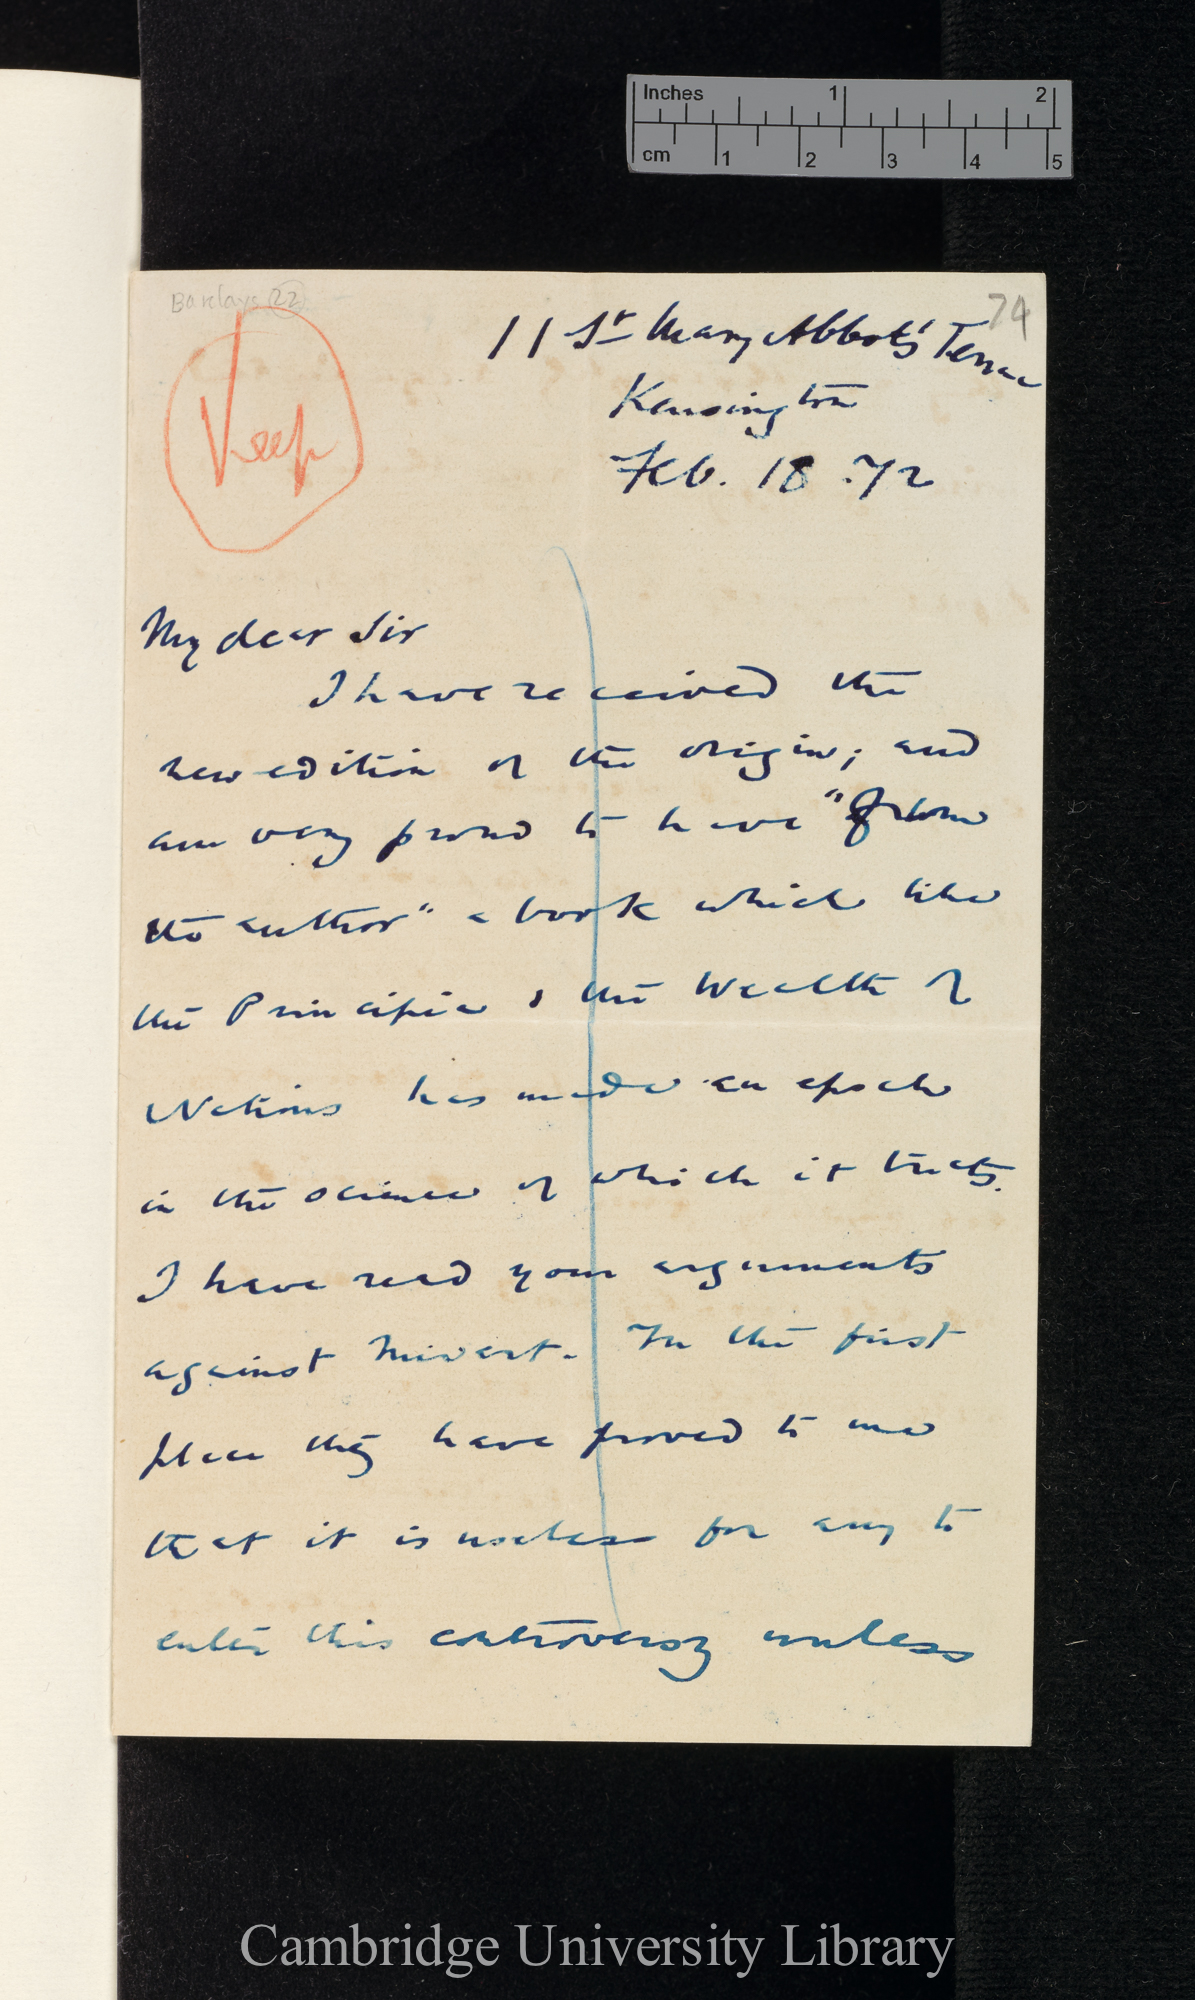 Inches 1 2
cm 1 2 3 4 5
Barclays 22
74
Keep
11 St Mary Abbots' Terrace
Kensington
Feb. 18. 72
My dear Sir
I have received the
new edition of the origin; and
am very proud to have "from
the author" a book which like
the Principia & the Wealth of
Nations has made an epoch
in the science of which it treats.
I have read your arguments
against Mivart. In the first
place they have proved to me
that it is useless for any to
enter this controversy unless
Cambridge University Library